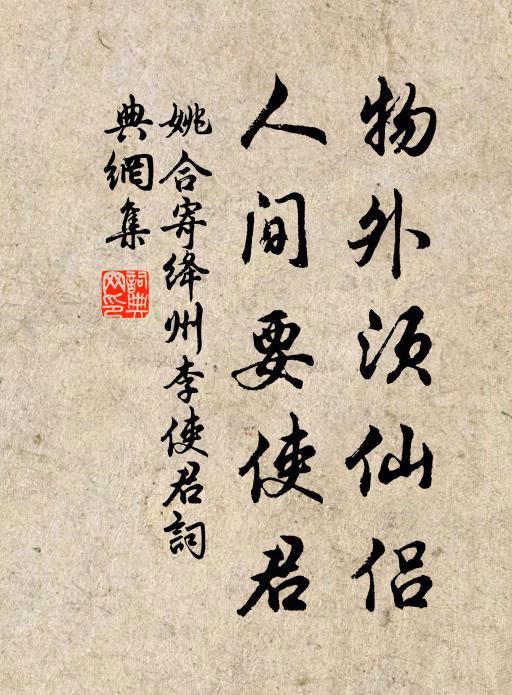 物外须仙侣
人间要使君
姚合寄绛州李使君詞
典網集
詞典
网印